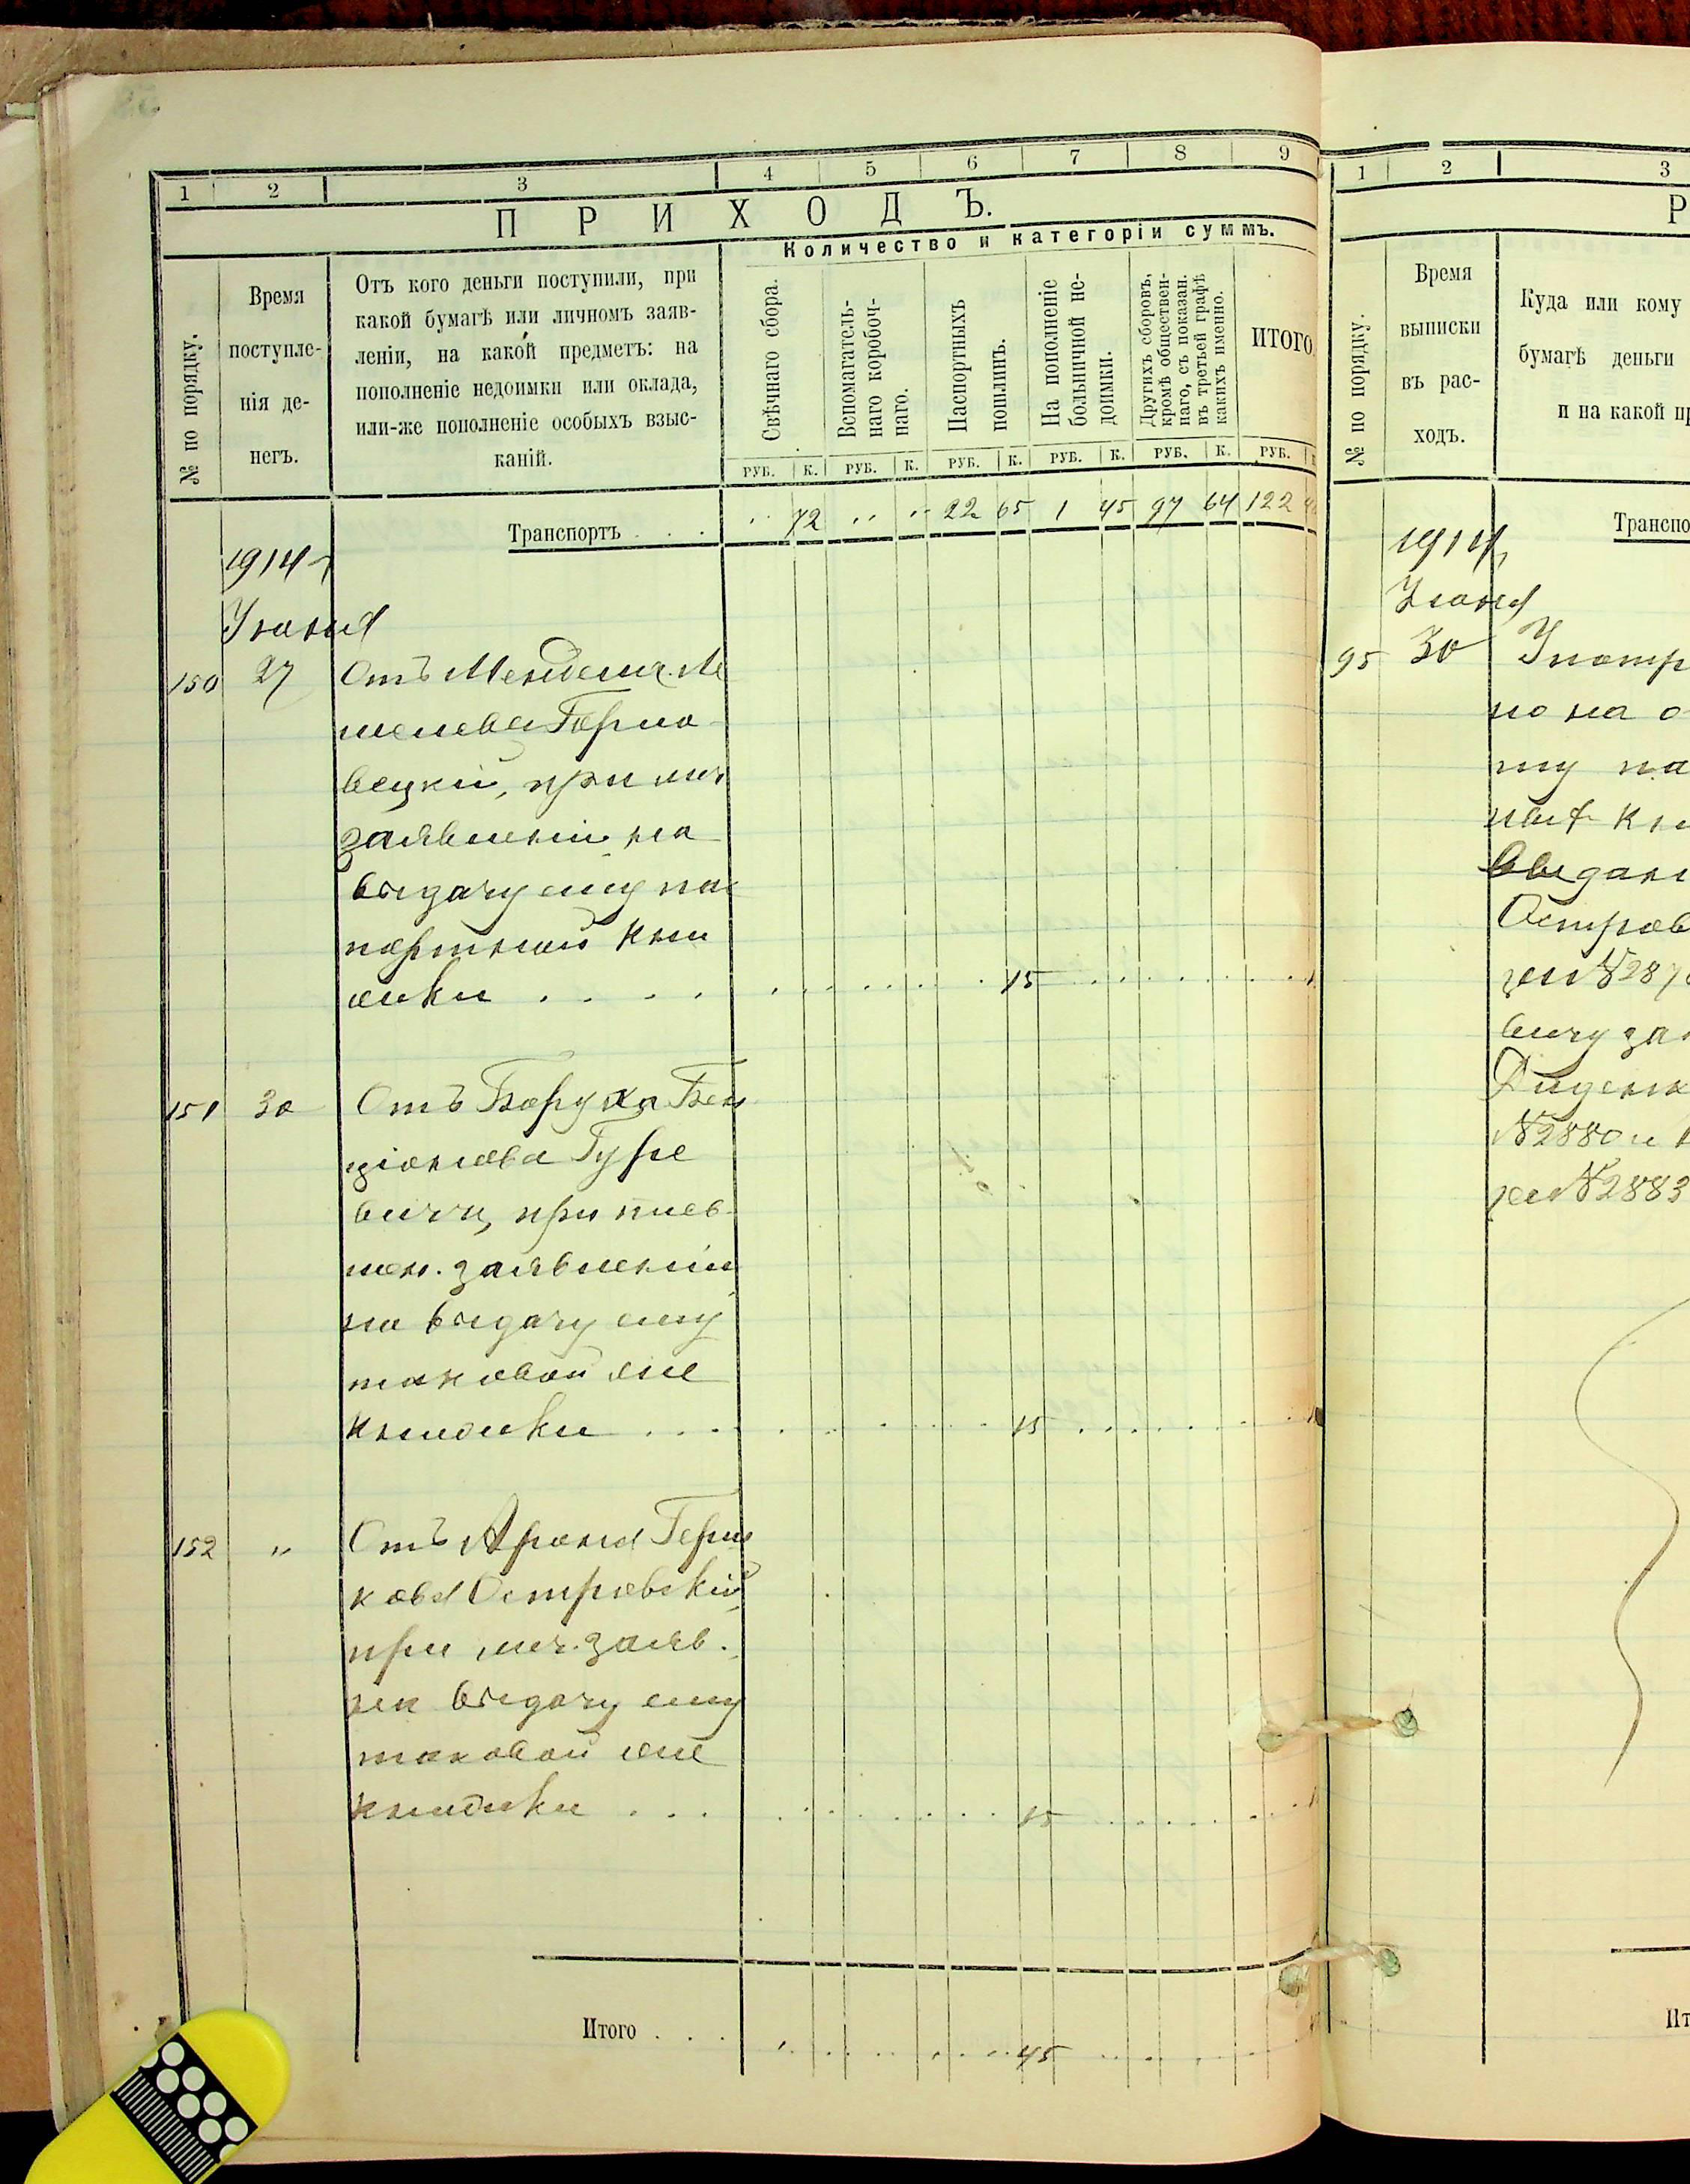 1 2 3 4 5 6 7 8 9
ПРИХОДЪ.
Количество и категоріи суммъ.
№ по порядку.
Время
поступле-
нія де-
негъ.
Отъ кого деньги поступили, при
какой бумагѣ или личномъ заяв-
леніи, на какой предметъ: на
пополненіе недоимки или оклада,
или-же пополненіе особыхъ взыс-
каній.
Свѣчнаго сбора.
Вспомагатель-
наго коробоч-
наго.
Паспортныхъ
пошлинъ.
На пополненіе
больничной не-
доимки.
Другихъ сборовъ,
кромѣ обществен-
наго, съ показан.
въ третьей графѣ
какихъ именно.
ИТОГО.
РУБ. К. РУБ. К. РУБ. К. РУБ. К. РУБ. К. РУБ.
Транспортъ . . . 72 22 65 1 45 97 64 122
1914 г
Іюня
150 27 Отъ Менделя
при лич
заявленіи на
выдачу ему пас
портной кни
жки . . . . 15
151 30 Отъ Боруха Бен
ціонова Гуре
вича, при письъ
мен. заявленіи
на выдачу ему
таковой же
книжки . . . 15
152 " Отъ Арона Герш
кова Островскій
при лич. заяв.
на выдачу ему
таковой же
книжки . . . 15
Итого . . . 45
1 2 3
Р
№ по порядку.
Время
выписки
въ рас-
ходъ.
Куда или кому
бумагѣ деньги
и на какой пр
Транспо
1914
Іюня
95 30 Употр
но на о
ту па
ныя кн
выдан
Остров
№ 287
вичу за
№ 2880 и
за № 2883
Ит